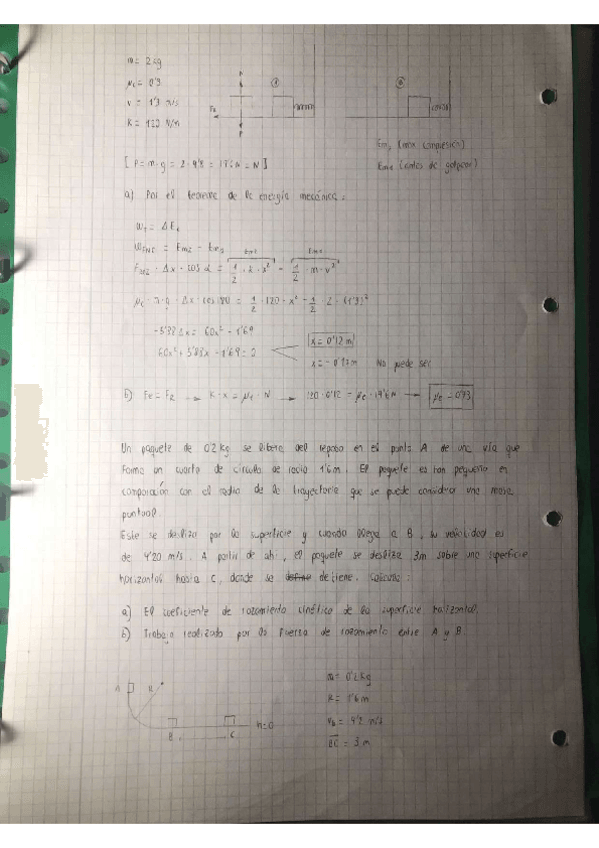 m = 2 kg
μc = 0'3
v = 1'3 m/s
K = 120 N/m
N
P
Em₁ (antes de golpear)
[P = m·g = 2·9'8 = 19'6 N = N]
a) Por el teorema de la energía mecánica:
Wt = ΔEt
WFNC = Em2 - Em1
FRoz · Δx · cos α = 1/2 · k · x² - 1/2 · m · v²
μc · m·g · Δx · cos 180 = 1/2 · 120 · x² - 1/2 · 2 · (1'3)²
-5'88 Δx = 60x² - 1'69
60x² + 5'88x - 1'69 = 0
x = 0'12 m
No puede ser
b) Fe = FR → K·x = μe·N → 120·0'12 = μe·19'6N → μe = 0'73
Un paquete de 0'2 kg se libera del reposo en el punto A de una vía que
forma un cuarto de círculo de radio 1'6 m. El paquete es tan pequeño en
comparación con el radio de la trayectoria que se puede considerar una masa
puntual.
Este se desliza por la superficie y cuando llega a B, su velocidad es
de 4'20 m/s. A partir de ahí, el paquete se desliza 3m sobre una superficie
horizontal hasta C, donde se detiene. Calcula:
a) El coeficiente de rozamiento cinético de la superficie horizontal.
b) Trabajo realizado por la fuerza de rozamiento entre A y B.
m = 0'2 kg
A R
R = 1'6 m
h=0
VB = 4'2 m/s
B C
BC = 3 m